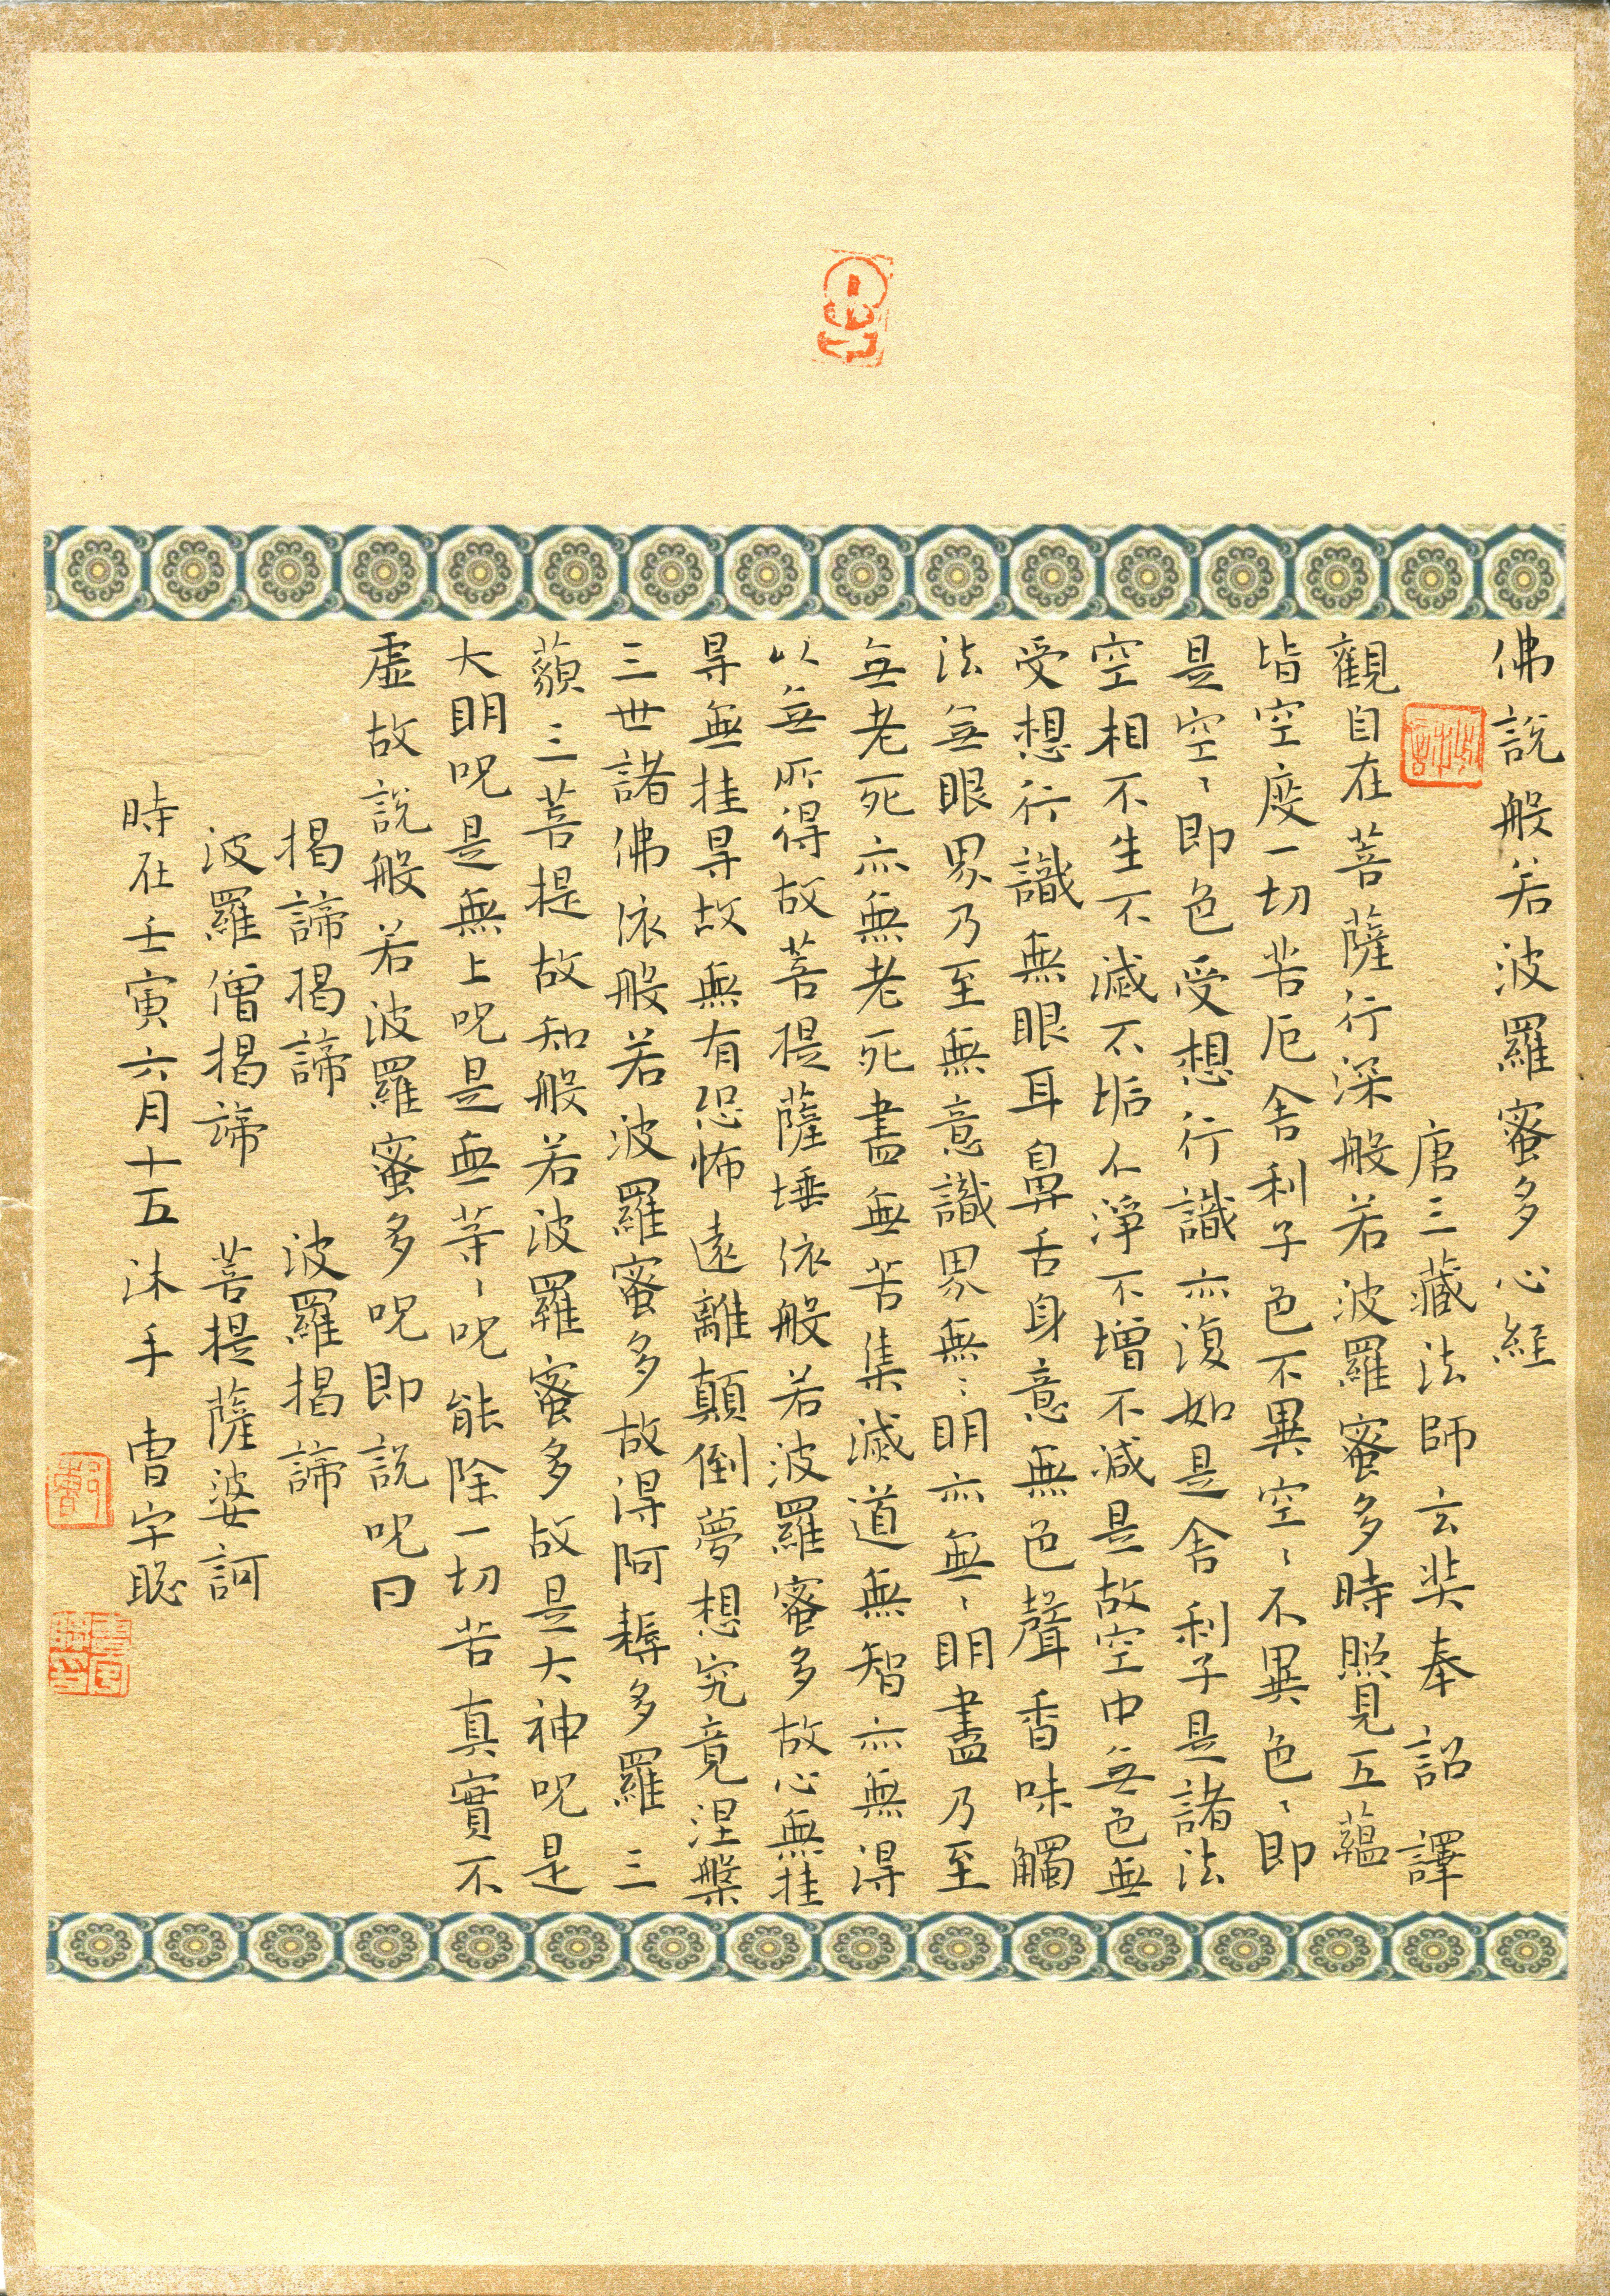 佛說般若波羅蜜多心經
唐三藏法師玄奘奉詔譯
觀自在菩薩行深般若波羅蜜多時照見五蘊
皆空度一切苦厄舍利子色不異空〻不異色〻即
是空〻即色受想行識亦復如是舍利子是諸法
空相不生不滅不垢不淨不增不減是故空中無色無
受想行識無眼耳鼻舌身意無色聲香味觸
法無眼界乃至無意識界無〻明亦無〻明盡乃至
無老死亦無老死盡無苦集滅道無智亦無得
以無所得故菩提薩埵依般若波羅蜜多故心無挂
㝵無挂㝵故無有恐怖遠離顛倒夢想究竟涅槃
三世諸佛依般若波羅蜜多故得阿耨多羅三
藐三菩提故知般若波羅蜜多故是大神呪是
大明呪是無上呪是無等〻呪能除一切苦真實不
虛故說般若波羅蜜多呪即說呪曰
揭諦揭諦 波羅揭諦
波羅僧揭諦 菩提薩婆訶
時在壬寅六月十五沐手 曹宇聪